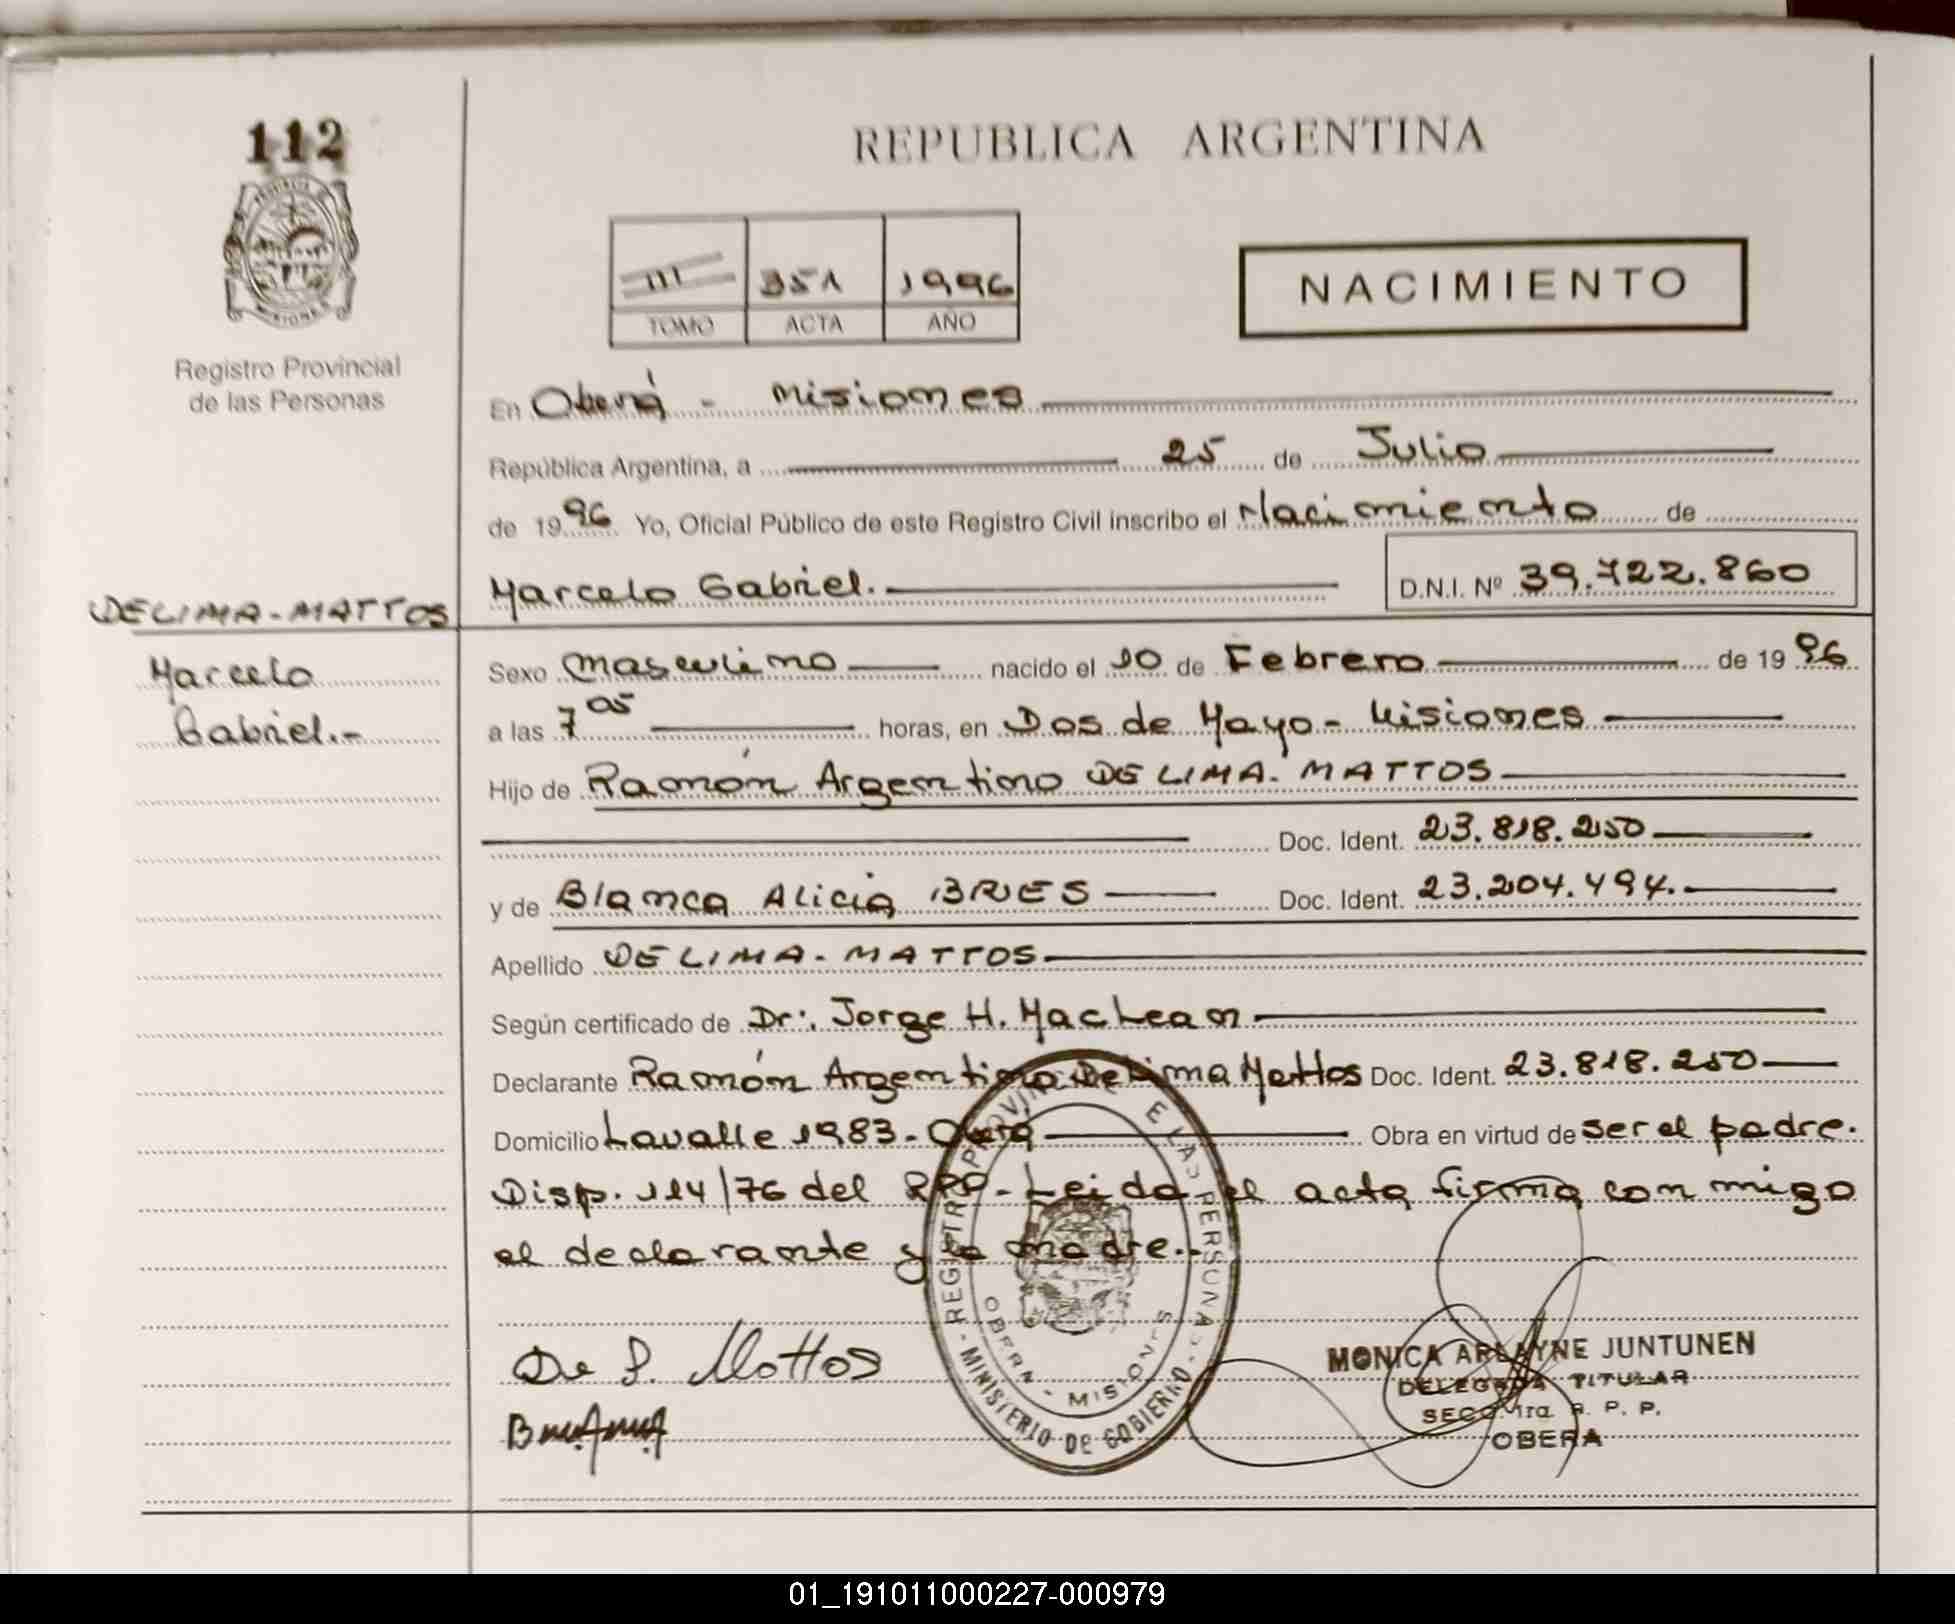 112
REPUBLICA ARGENTINA
III 351 1996
TOMO ACTA AÑO
NACIMIENTO
Registro Provincial
de las Personas
En Oberá - Misiones
República Argentina, a 25 de Julio
de 1996 Yo, Oficial Público de este Registro Civil inscribo el Nacimiento de
Marcelo Gabriel. D.N.I. Nº 39.722.860
DE LIMA-MATTOS
Marcelo
Gabriel.-
Sexo Masculino nacido el 10 de Febrero de 1996
a las 7 05 horas, en Dos de Mayo - Misiones
Hijo de Ramón Argentino DE LIMA-MATTOS
Doc. Ident. 23.818.250
y de Blanca Alicia Doc. Ident. 23.204.494.
Apellido DE LIMA-MATTOS
Según certificado de Dr. Jorge H. MacLean
Declarante Ramón Argentino De Lima Mattos Doc. Ident. 23.818.250
Domicilio Lavalle 1983 - Oberá Obra en virtud de ser el padre.
Disp. 114/76 del RPP - Leida el acta firma con migo
el declarante y la madre.-
REGISTRO PROVINCIAL DE LAS PERSONAS
OBERA - MISIONES
MINISTERIO DE GOBIERNO
De L. Mattos
MONICA ARLAYNE JUNTUNEN
DELEGADA TITULAR
SECC. 1ra R. P. P.
OBERA
01_191011000227-000979